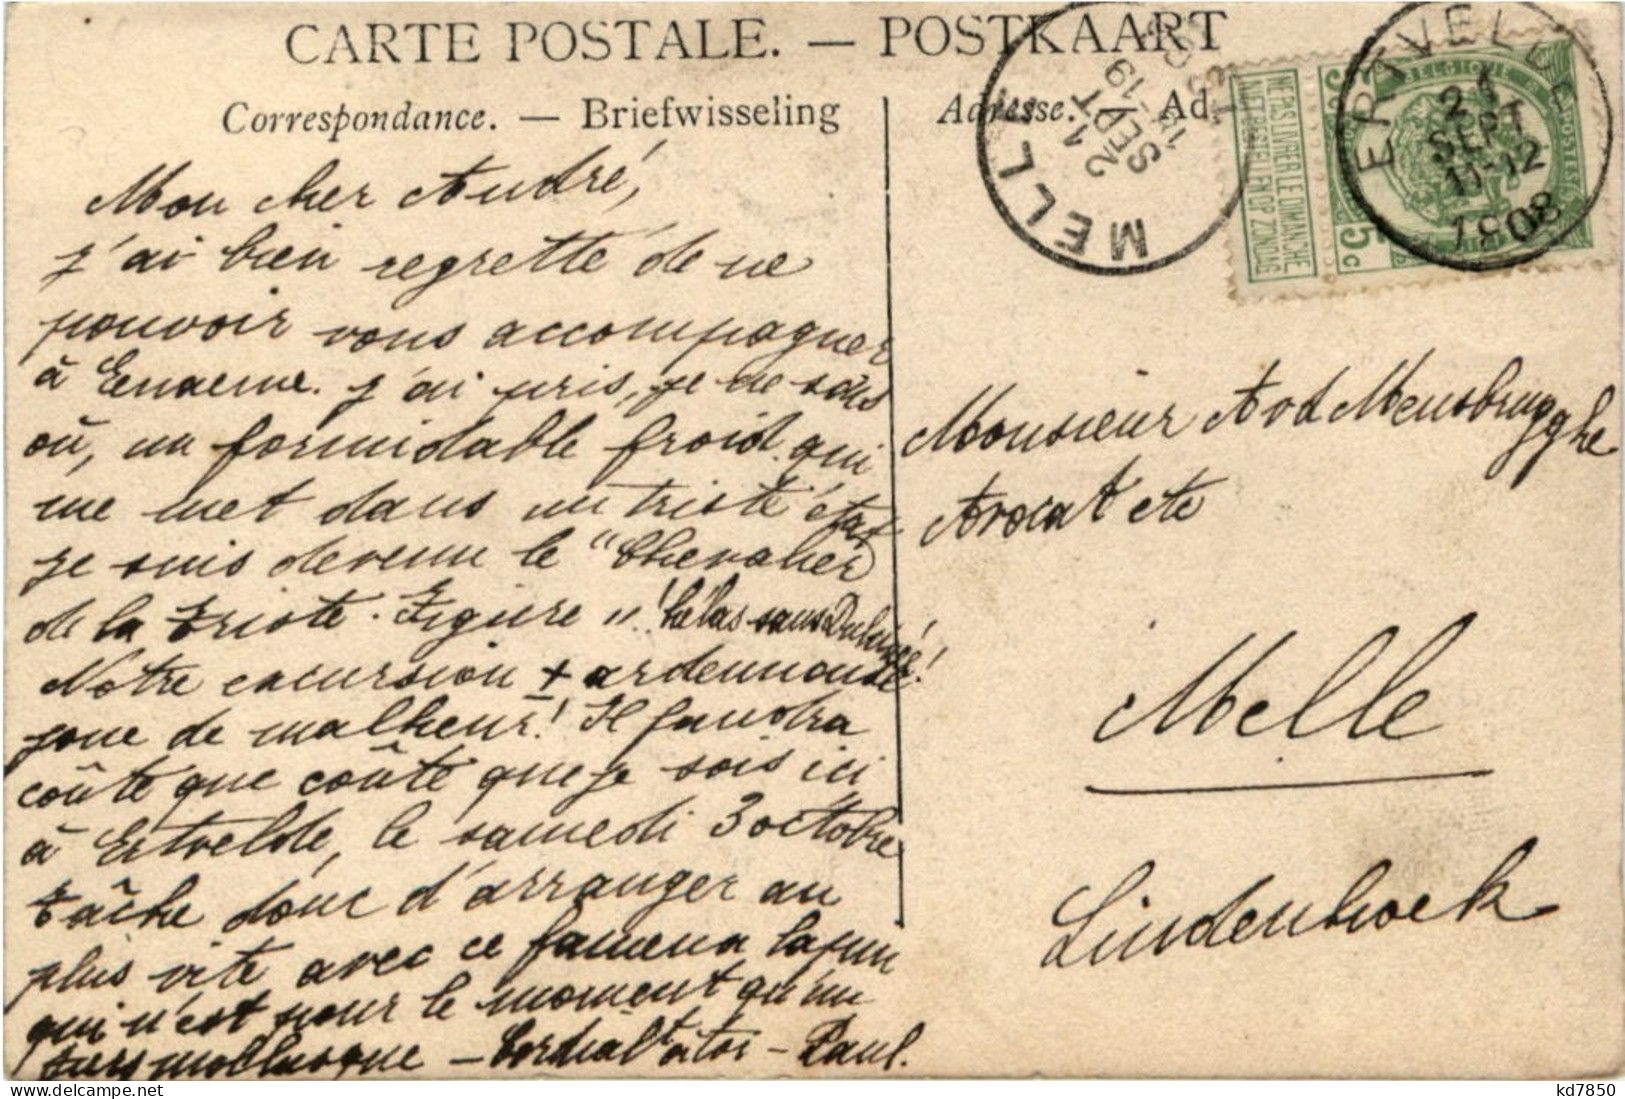 CARTE POSTALE. — POSTKAART
Correspondance. — Briefwisseling
Adresse. Ad
MELLE
1
SEPT
19
ERTVELDE
21
SEPT
11-12
1908
BELGIQUE
POSTES
5 c
NE PAS LIVRER LE DIMANCHE
NIET BESTELLEN OP ZONDAG
Mon cher André,
j'ai bien regretté de ne
pouvoir vous accompagner
à Ename. j'ai pris, je ne sais
où, un formidable froid qui
me met dans un triste état
je suis devenu le "Chevalier
de la triste Figure"! hélas sans Dulcinée!
Notre excursion + ardennaise
joue de malheur! Il faudra
coûte que coûte que je sois ici
à Ertvelde, le samedi 3 octobre
tâche donc d'arranger au
plus vite avec ce fameux
qui n'est pour le moment qu'un
mollusque — Cordial' à toi — Paul.
Monsieur A vd Mensbrugghe
Avocat etc
Melle
Lindenhoek
kd7850